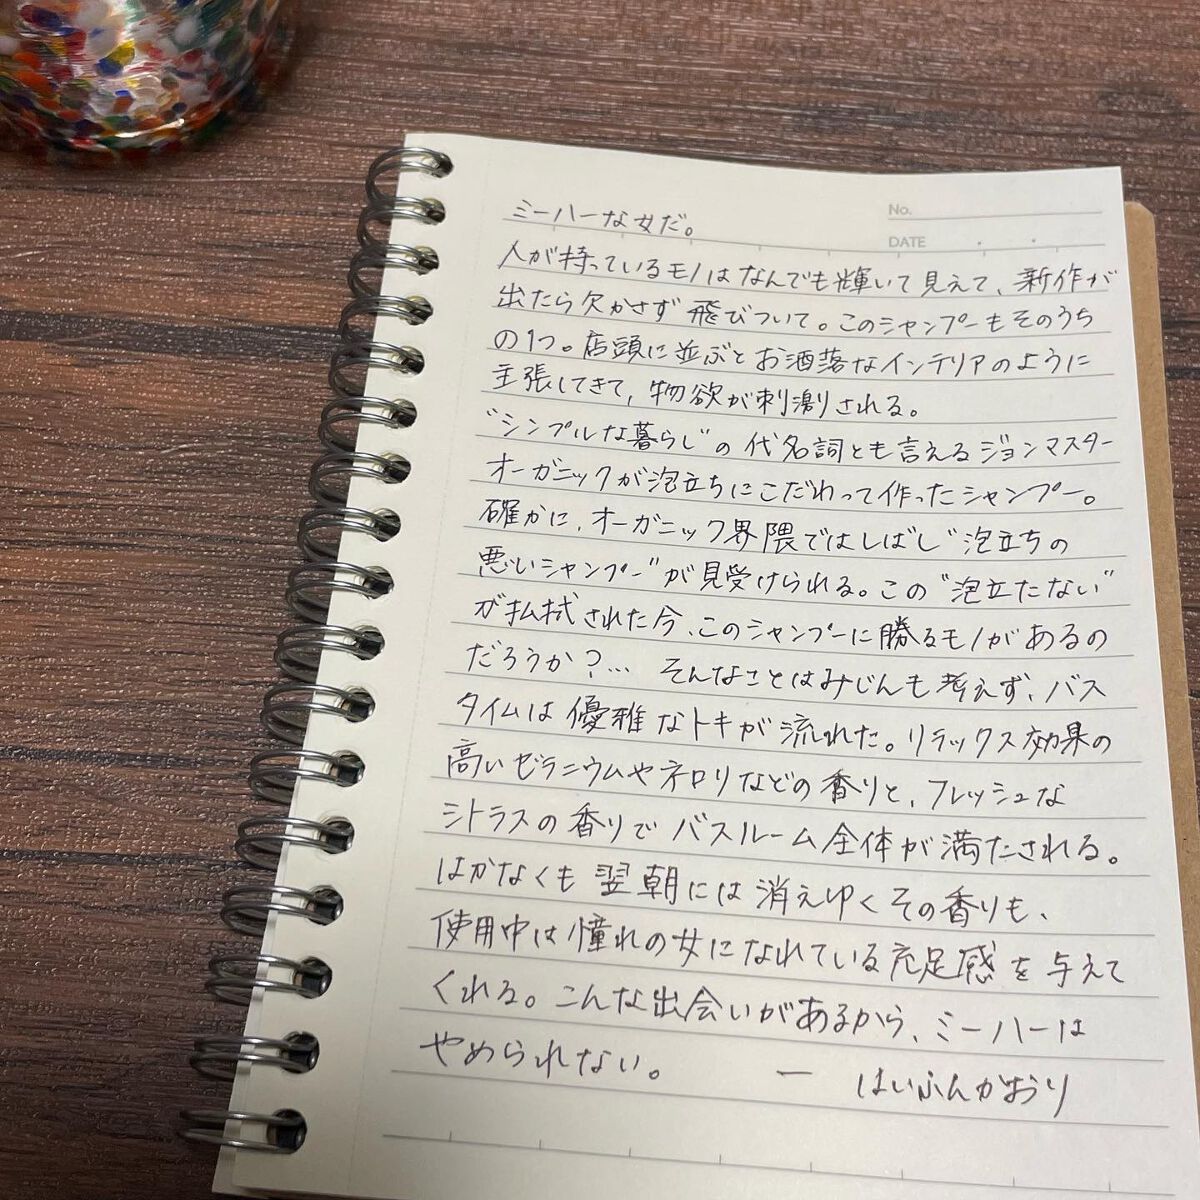 No.
DATE
ミーハーな女だ。
人が持っているモノはなんでも輝いて見えて、新作が
出たら欠かさず飛びついて。このシャンプーもそのうち
の1つ。店頭に並ぶとお洒落なインテリアのように
主張してきて、物欲が刺激される。
"シンプルな暮らし"の代名詞とも言えるジョンマスター
オーガニックが泡立ちにこだわって作ったシャンプー。
確かに、オーガニック界隈ではしばしば"泡立ちの
悪いシャンプー"が見受けられる。この"泡立たない"
が払拭された今、このシャンプーに勝るモノがあるの
だろうか?… そんなことはみじんも考えず、バス
タイムは優雅なトキが流れた。リラックス効果の
高いゼラニウムやネロリなどの香りと、フレッシュな
シトラスの香りでバスルーム全体が満たされる。
はかなくも翌朝には消えゆくその香りも、
使用中は憧れの女になれている充足感を与えて
くれる。こんな出会いがあるから、ミーハーは
やめられない。 ー はいふんかおり